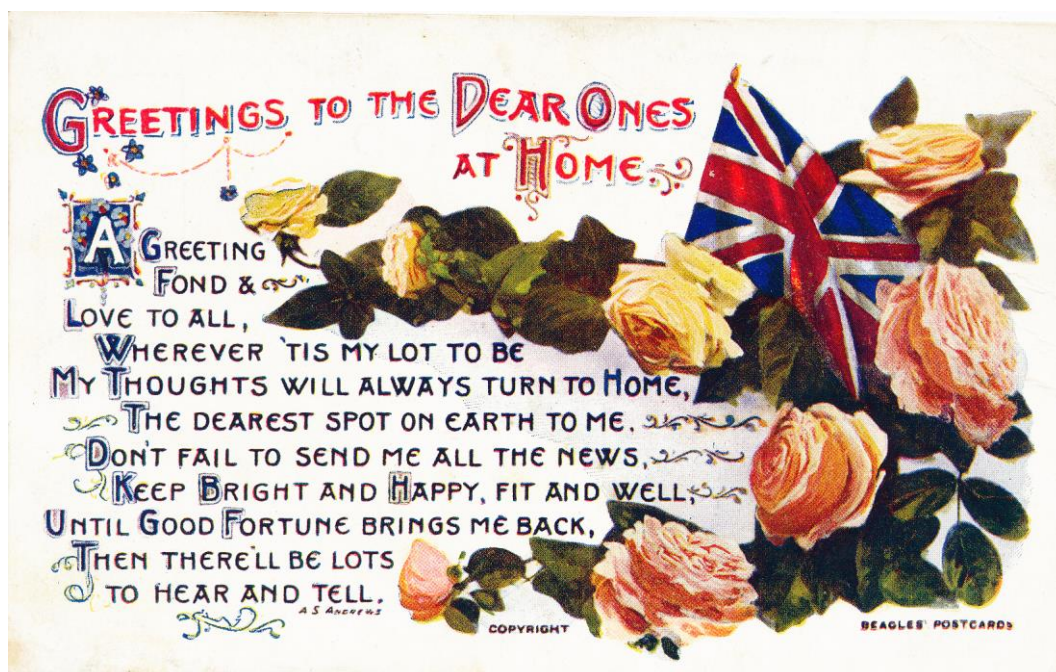 GREETINGS TO THE DEAR ONES
AT HOME
A GREETING
FOND &
LOVE TO ALL,
WHEREVER 'TIS MY LOT TO BE
MY THOUGHTS WILL ALWAYS TURN TO HOME,
THE DEAREST SPOT ON EARTH TO ME.
DON'T FAIL TO SEND ME ALL THE NEWS,
KEEP BRIGHT AND HAPPY, FIT AND WELL,
UNTIL GOOD FORTUNE BRINGS ME BACK,
THEN THERE'LL BE LOTS
TO HEAR AND TELL.
A S ANDREWS
COPYRIGHT
BEAGLES' POSTCARDS